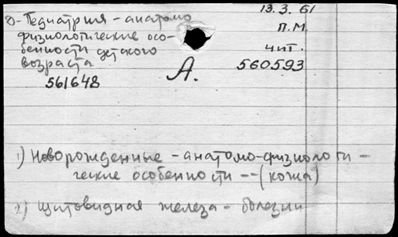 Педиатрия - анатомо
физиологические осо-
бенности детского
возраста
561648
А.
13.3.61
П.М.
чит.
560593
1) Новорожденные - анатомо-физиологи-
ческие особенности -- (кожа)
2) щитовидная железа - болезни